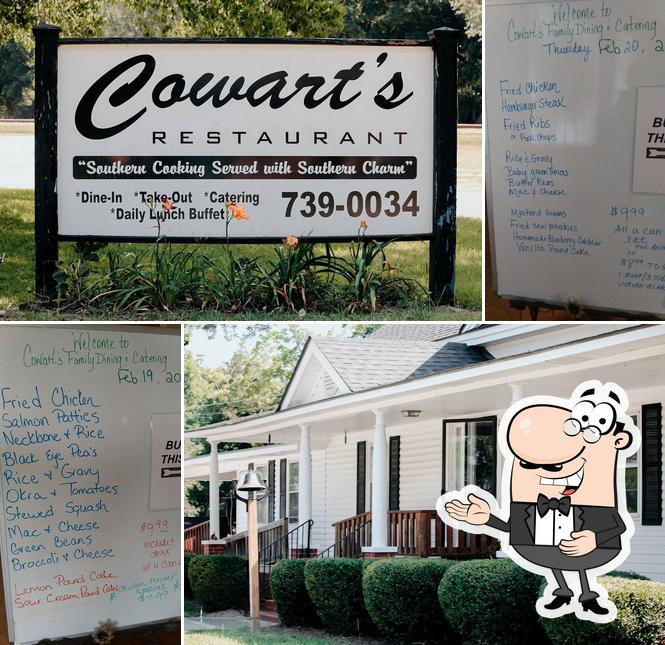 Cowart's
RESTAURANT
"Southern Cooking Served with Southern Charm"
*Dine-In *Take-Out *Catering
*Daily Lunch Buffet
739-0034
Welcome to
Cowart's Family Dining & Catering
Thursday Feb 20, '2
Fried Chicken
Hamburger Steak
Fried Ribs
or Pork Chops
Rice & Gravy
Baby green limas
Butter Peas
Mac & Cheese
Mustard Greens
Fried new potatoes
Hommade Blueberry Cobbler
Vanilla Pound Cake
$9.99
All u can
eat
or
$8.99 TO
1 meat/3
include drink
BU
THIS
Welcome to
Cowart's Family Dining & Catering
Feb. 19, 20
Fried Chicken
Salmon Patties
Neckbone & Rice
Black Eye Pea's
Rice & Gravy
Okra & Tomatoes
Stewed Squash
Mac & Cheese
Green Beans
Broccoli & Cheese
Lemon Pound Cake
Sour Cream Pound Cake
$9.99
includes
drink
all u can
Chicken tender
Special
$7.99
BU
THIS